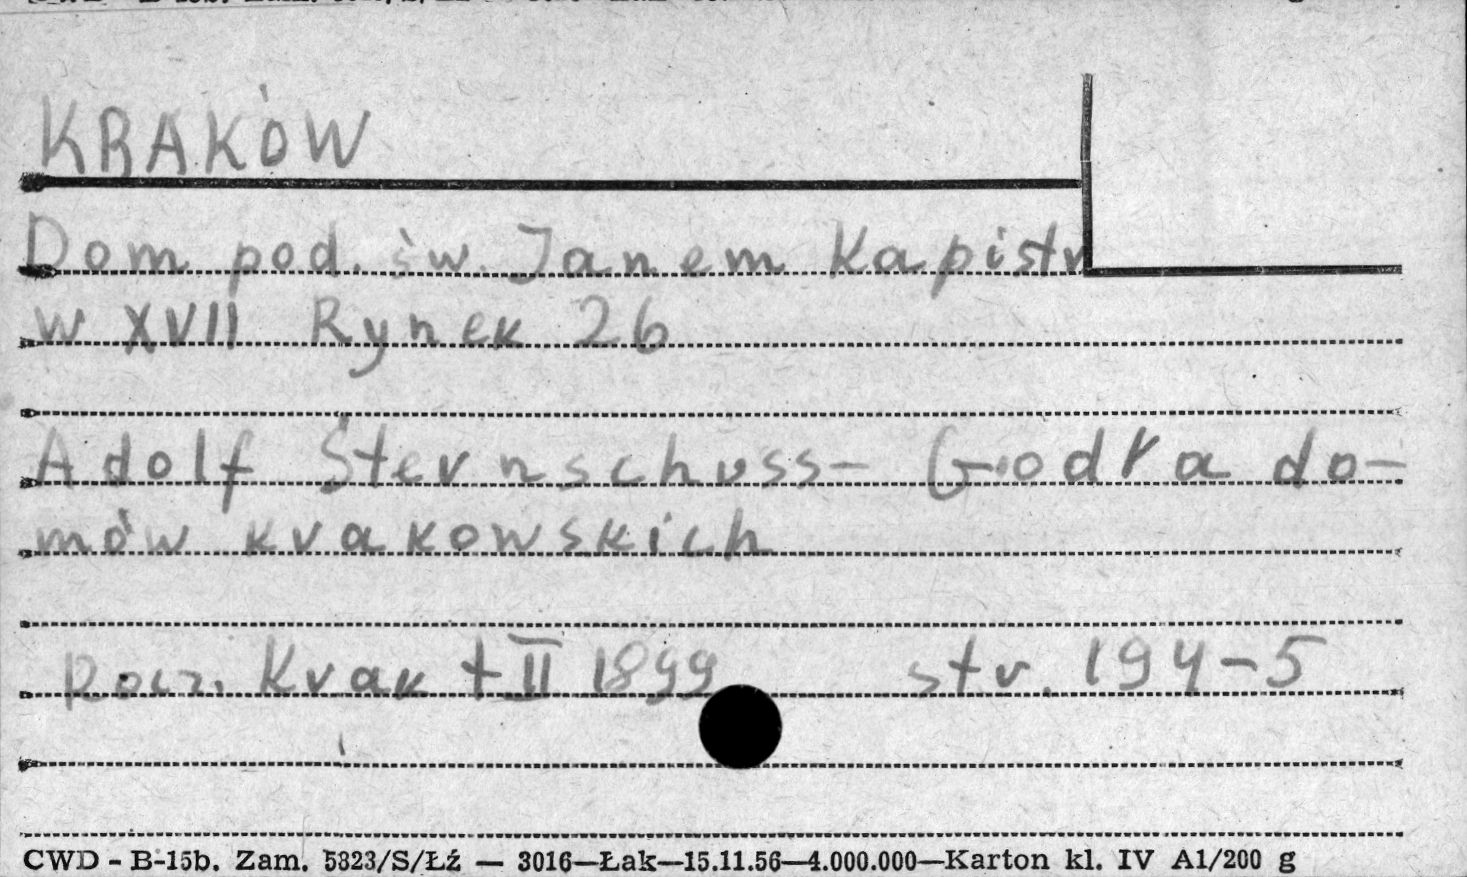 KRAKÓW
Dom pod. św. Janem Kapistr
w XVII Rynek 26
Adolf Sternschuss- Godła do-
mów krakowskich
Rocz. Krak t II 1899 str. 194-5
CWD - B-15b. Zam. 5823/S/Łź — 3016—Łak—15.11.56—4.000.000—Karton kl. IV A1/200 g